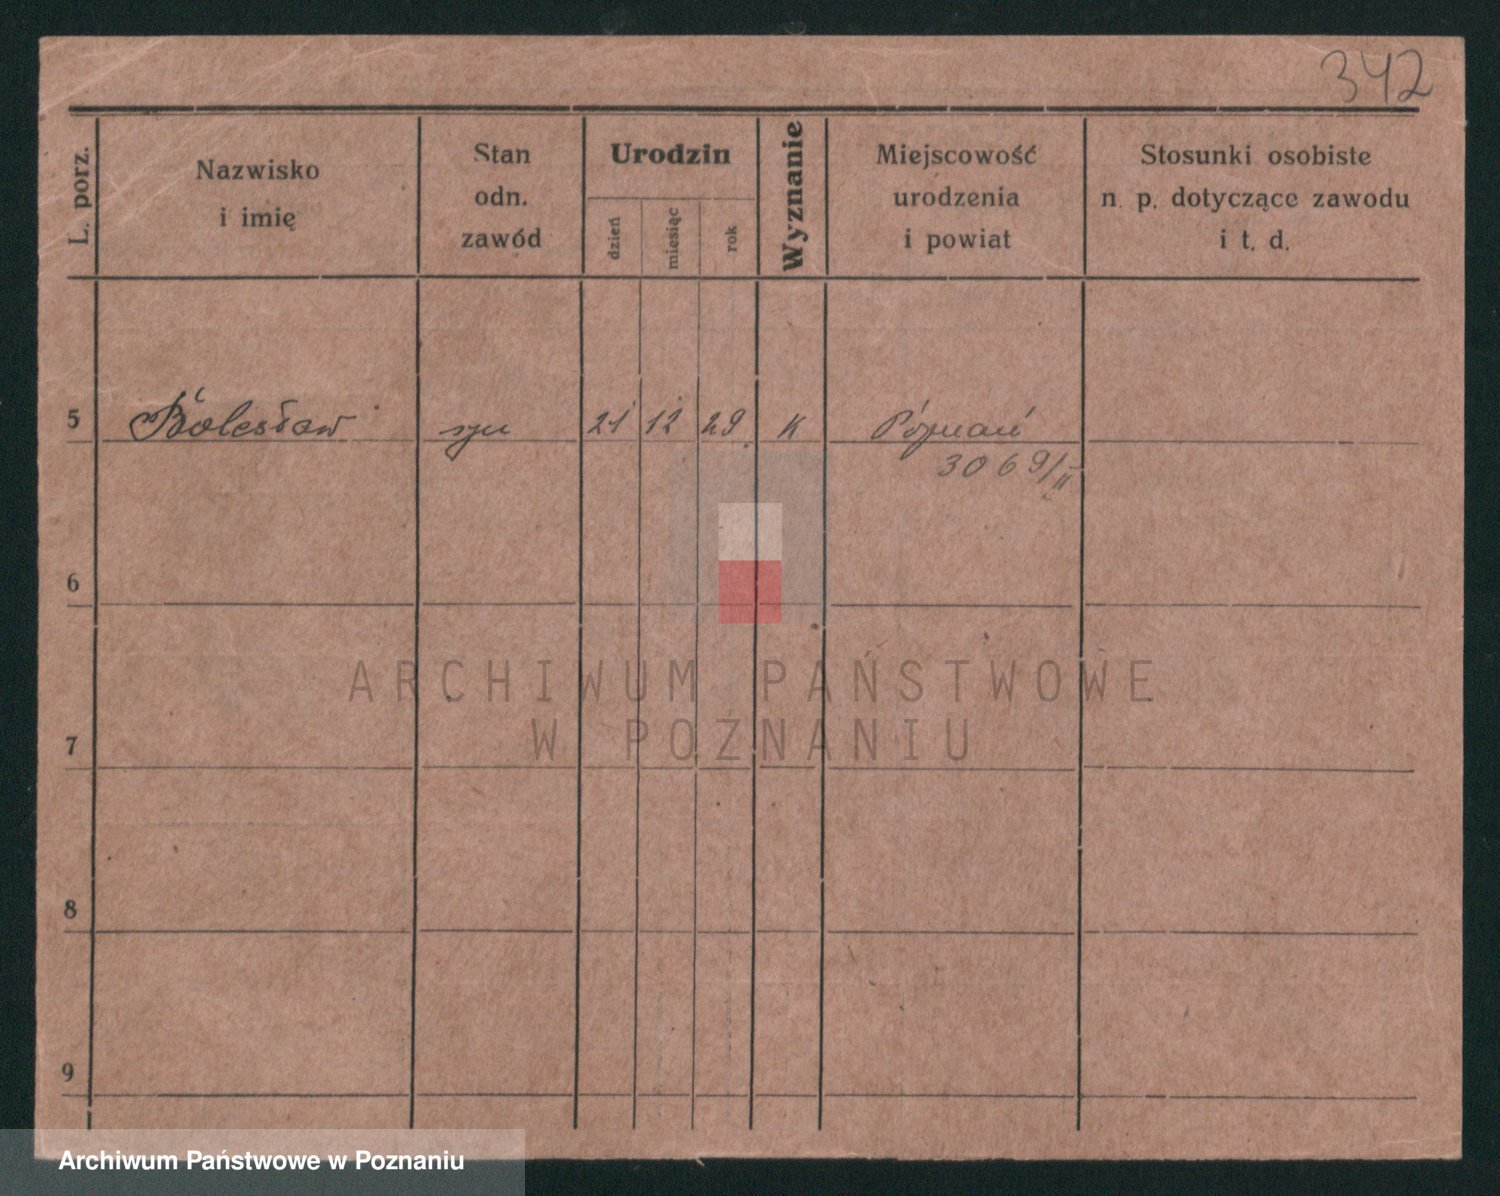 342
L. porz.
Nazwisko
i imię
Stan
odn.
zawód
Urodzin
dzień
miesiąc
rok
Wyznanie
Miejscowość
urodzenia
i powiat
Stosunki osobiste
n. p. dotyczące zawodu
i t. d.
5 Bolesław syn 21 12 29 K Poznań
3069/II
6
ARCHIWUM PAŃSTWOWE
W POZNANIU
7
8
9
Archiwum Państwowe w Poznaniu